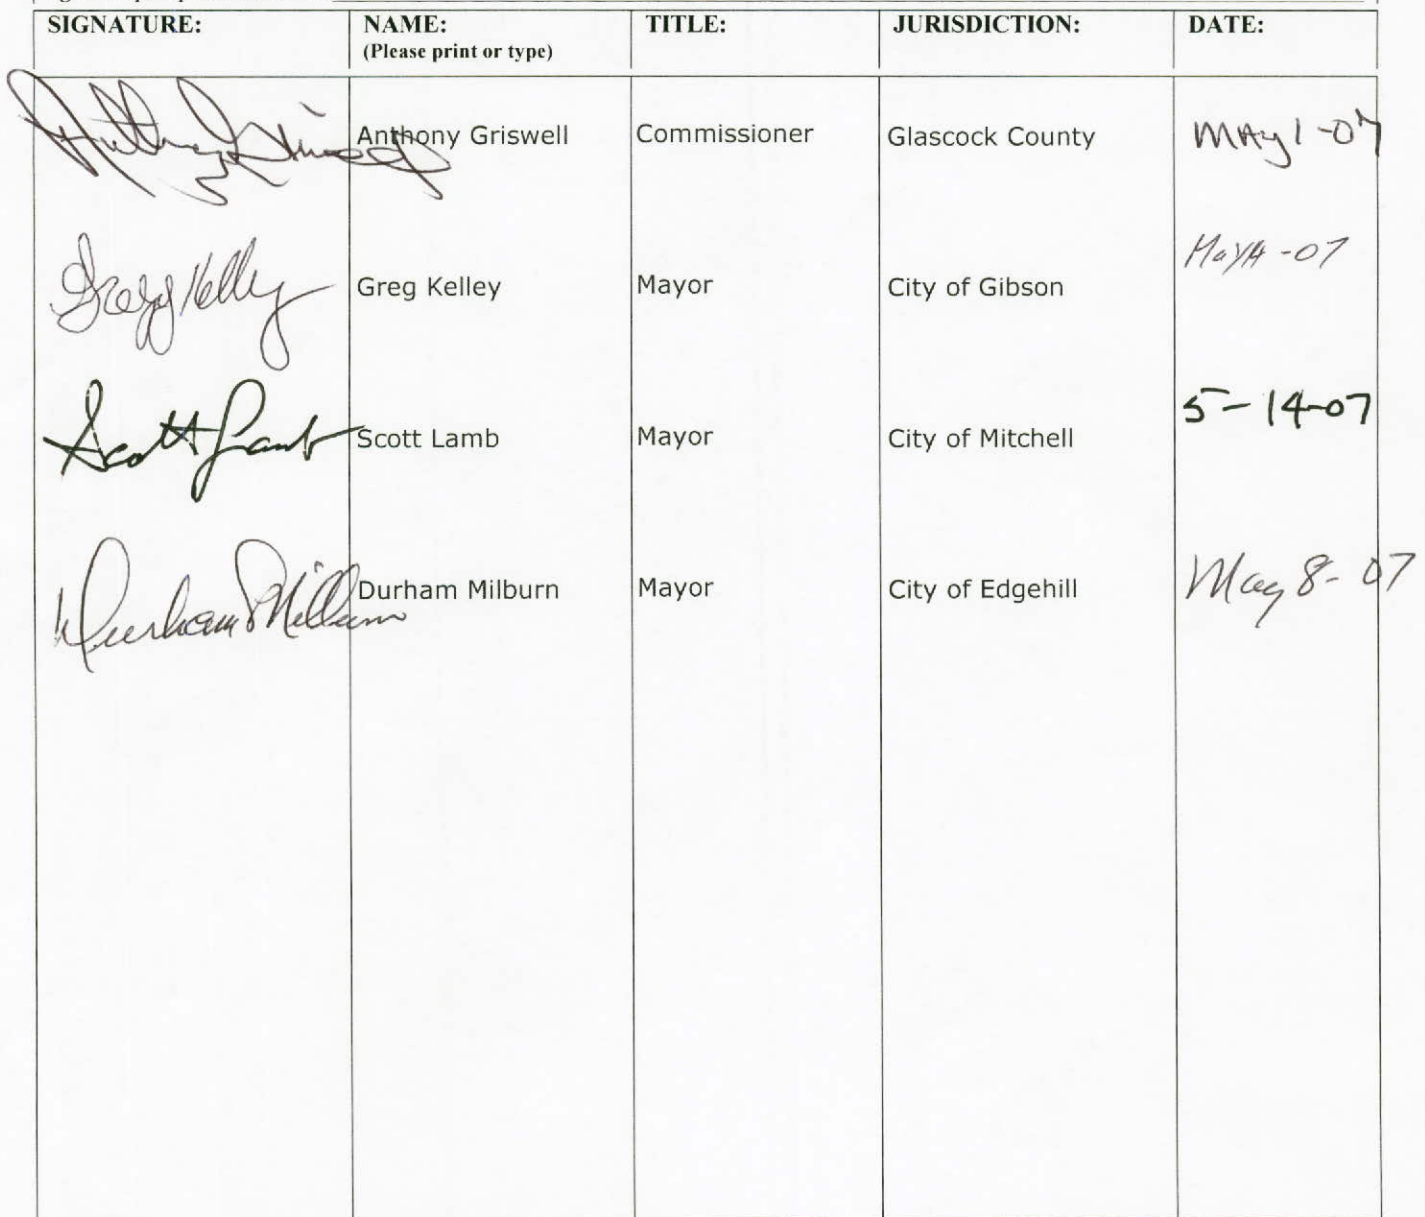 SIGNATURE: NAME: TITLE: JURISDICTION: DATE:
(Please print or type)
Anthony Griswell Commissioner Glascock County MAy 1-07
Greg Kelley Greg Kelley Mayor City of Gibson
-07
Scott Lamb Scott Lamb Mayor City of Mitchell 5-14-07
Durham Milburn Durham Milburn Mayor City of Edgehill May 8-07